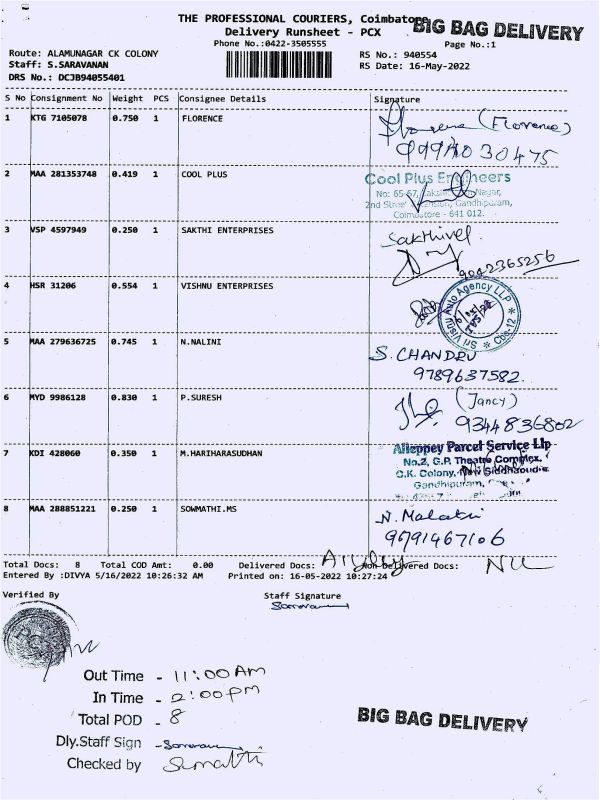 THE PROFESSIONAL COURIERS, Coimbatore
BIG BAG DELIVERY
Delivery Runsheet - PCX
Phone No.:0422-3505555
Page No.:1
Route: ALAMUNAGAR CK COLONY
RS No.: 940554
Staff: S.SARAVANAN
RS Date: 16-May-2022
DRS No.: DCJB94055401
S No Consignment No Weight PCS Consignee Details Signature
1 KTG 7105078 0.750 1 FLORENCE
(Florence)
2 MAA 281353748 0.419 1 COOL PLUS
Cool Plus Engineers
No: 65-67, Nagar,
2nd Gandhipuram,
Coimbatore - 641 012.
3 VSP 4597949 0.250 1 SAKTHI ENTERPRISES
Sakthivel
9042365256
4 HSR 31206 0.554 1 VISHNU ENTERPRISES
Sri Vishnu Auto Agency LLP * Cbe-12 *
5 MAA 279636725 0.745 1 N.NALINI
S. CHANDRU
9789637582
6 MYD 9986128 0.830 1 P.SURESH
(Jancy)
9344836802
7 KDI 428060 0.350 1 M.HARIHARASUDHAN
Alleppey Parcel Service Llp
No.2, G.P. Theatre Complex,
C.K. Colony, New Siddhapudur
Gandhipuram,
8 MAA 288851221 0.250 1 SOWMATHI.MS
N. Malathi
9791467106
Total Docs: 8 Total COD Amt: 0.00 Delivered Docs: Non-Delivered Docs: NIL
Entered By :DIVYA 5/16/2022 10:26:32 AM Printed on: 16-05-2022 10:27:24
Verified By
Staff Signature
Out Time - 11:00 Am
In Time - 2:00 pm
Total POD - 8
Dly.Staff Sign -
Checked by
BIG BAG DELIVERY